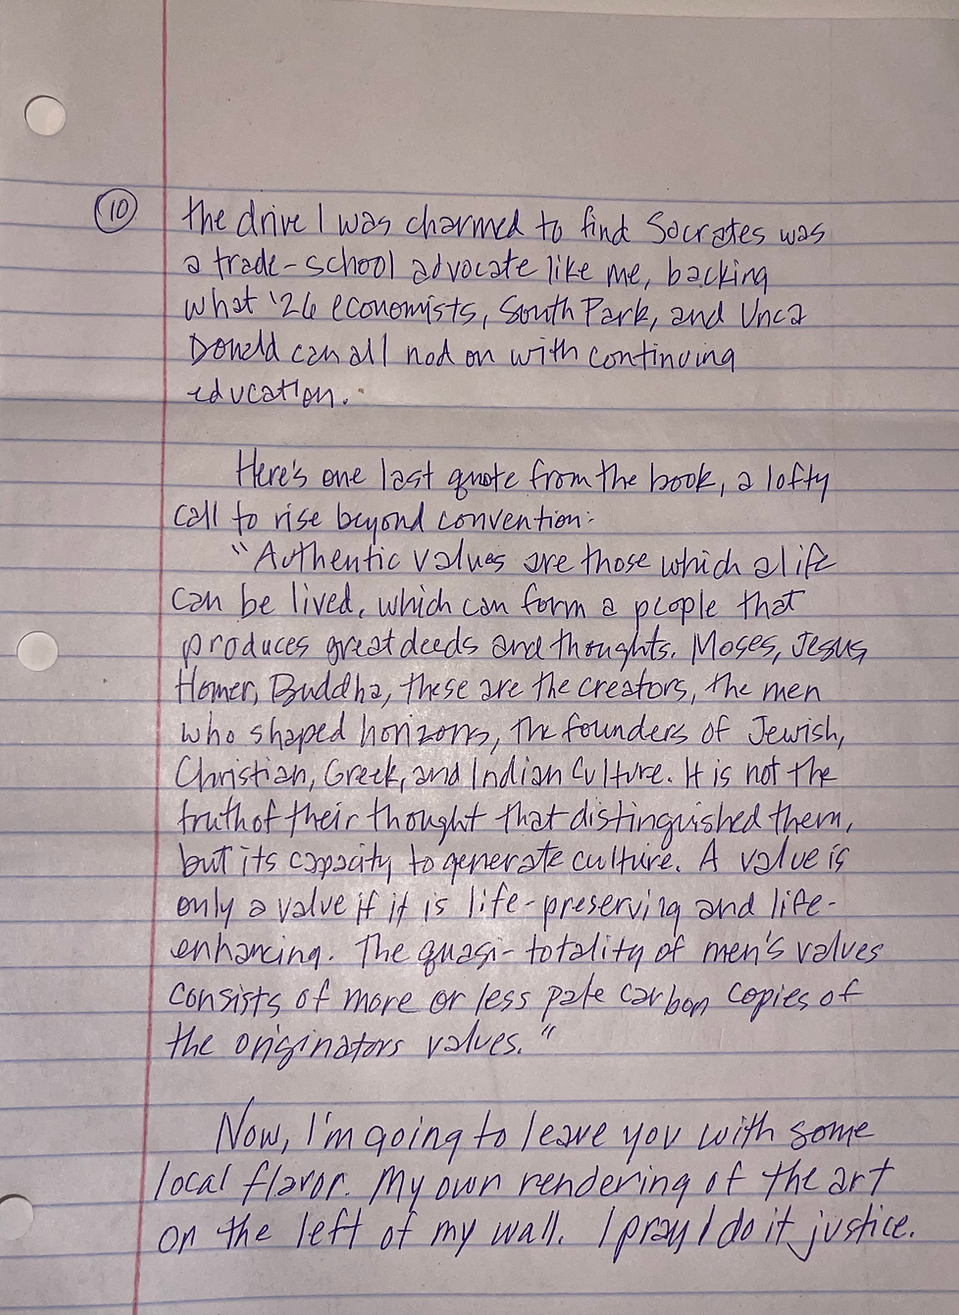 10
the drive I was charmed to find Socrates was
a trade-school advocate like me, backing
what '26 economists, South Park, and Unca
Donald can all nod on with continuing
education.
Here's one last quote from the book, a lofty
call to rise beyond convention:
"Authentic values are those which a life
can be lived, which can form a people that
produces great deeds and thoughts. Moses, Jesus,
Homer, Buddha, these are the creators, the men
who shaped horizons, the founders of Jewish,
Christian, Greek, and Indian Culture. It is not the
truth of their thought that distinguished them,
but its capacity to generate culture. A value is
only a value if it is life-preserving and life-
enhancing. The quasi-totality of men's values
consists of more or less pale carbon copies of
the originators values."
Now, I'm going to leave you with some
local flavor. My own rendering of the art
on the left of my wall. I pray I do it justice.